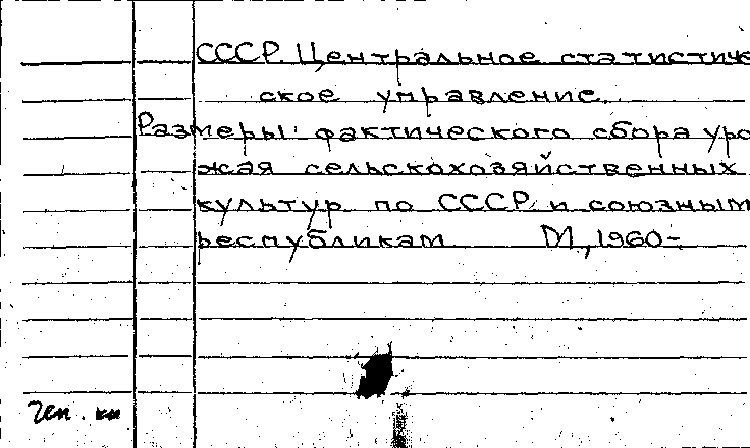 СССР. Центральное статистиче
ское управление.
Размеры фактического сбора уро
жая сельскохозяйственных
культур по СССР и союзным
республикам М., 1960-